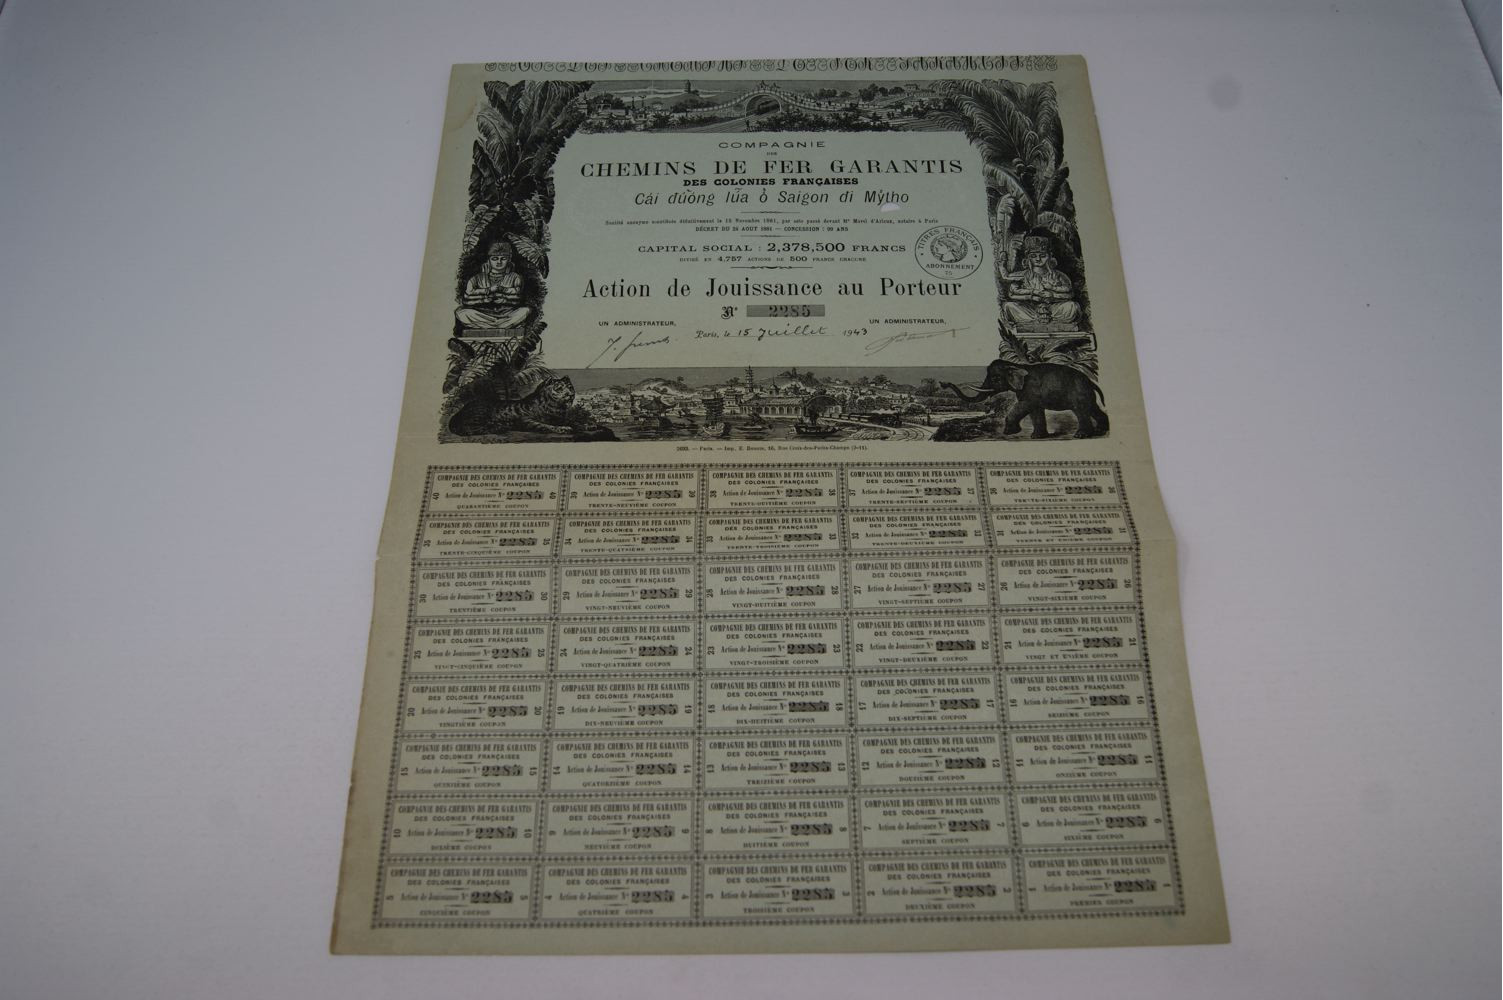 COMPAGNIE
DES
CHEMINS DE FER GARANTIS
DES COLONIES FRANÇAISES
Cái đường lủa ở Saigon đi Mỹtho
Société anonyme constituée définitivement le 15 Novembre 1881, par acte passé devant Me Morel d'Arleux, notaire à Paris
DÉCRET DU 24 AOUT 1881 — CONCESSION : 99 ANS
CAPITAL SOCIAL : 2,378,500 FRANCS
DIVISÉ EN 4,757 ACTIONS DE 500 FRANCS CHACUNE
TITRES FRANÇAIS
ABONNEMENT
75
Action de Jouissance au Porteur
No 2285
UN ADMINISTRATEUR, UN ADMINISTRATEUR,
Paris, le 15 Juillet 1943
Paris. — Imp. Rue Croix-des-Petits-Champs
COMPAGNIE DES CHEMINS DE FER GARANTIS
DES COLONIES FRANÇAISES
40 Action de Jouissance No 2285 40
QUARANTIÈME COUPON
COMPAGNIE DES CHEMINS DE FER GARANTIS
DES COLONIES FRANÇAISES
39 Action de Jouissance No 2285 39
TRENTE-NEUVIÈME COUPON
COMPAGNIE DES CHEMINS DE FER GARANTIS
DES COLONIES FRANÇAISES
38 Action de Jouissance No 2285 38
TRENTE-HUITIÈME COUPON
COMPAGNIE DES CHEMINS DE FER GARANTIS
DES COLONIES FRANÇAISES
37 Action de Jouissance No 2285 37
TRENTE-SEPTIÈME COUPON
COMPAGNIE DES CHEMINS DE FER GARANTIS
DES COLONIES FRANÇAISES
36 Action de Jouissance No 2285 36
TRENTE-SIXIÈME COUPON
COMPAGNIE DES CHEMINS DE FER GARANTIS
DES COLONIES FRANÇAISES
35 Action de Jouissance No 2285 35
TRENTE-CINQUIÈME COUPON
COMPAGNIE DES CHEMINS DE FER GARANTIS
DES COLONIES FRANÇAISES
34 Action de Jouissance No 2285 34
TRENTE-QUATRIÈME COUPON
COMPAGNIE DES CHEMINS DE FER GARANTIS
DES COLONIES FRANÇAISES
33 Action de Jouissance No 2285 33
TRENTE-TROISIÈME COUPON
COMPAGNIE DES CHEMINS DE FER GARANTIS
DES COLONIES FRANÇAISES
32 Action de Jouissance No 2285 32
TRENTE-DEUXIÈME COUPON
COMPAGNIE DES CHEMINS DE FER GARANTIS
DES COLONIES FRANÇAISES
31 Action de Jouissance No 2285 31
TRENTE ET UNIÈME COUPON
COMPAGNIE DES CHEMINS DE FER GARANTIS
DES COLONIES FRANÇAISES
30 Action de Jouissance No 2285 30
TRENTIÈME COUPON
COMPAGNIE DES CHEMINS DE FER GARANTIS
DES COLONIES FRANÇAISES
29 Action de Jouissance No 2285 29
VINGT-NEUVIÈME COUPON
COMPAGNIE DES CHEMINS DE FER GARANTIS
DES COLONIES FRANÇAISES
28 Action de Jouissance No 2285 28
VINGT-HUITIÈME COUPON
COMPAGNIE DES CHEMINS DE FER GARANTIS
DES COLONIES FRANÇAISES
27 Action de Jouissance No 2285 27
VINGT-SEPTIÈME COUPON
COMPAGNIE DES CHEMINS DE FER GARANTIS
DES COLONIES FRANÇAISES
26 Action de Jouissance No 2285 26
VINGT-SIXIÈME COUPON
COMPAGNIE DES CHEMINS DE FER GARANTIS
DES COLONIES FRANÇAISES
25 Action de Jouissance No 2285 25
VINGT-CINQUIÈME COUPON
COMPAGNIE DES CHEMINS DE FER GARANTIS
DES COLONIES FRANÇAISES
24 Action de Jouissance No 2285 24
VINGT-QUATRIÈME COUPON
COMPAGNIE DES CHEMINS DE FER GARANTIS
DES COLONIES FRANÇAISES
23 Action de Jouissance No 2285 23
VINGT-TROISIÈME COUPON
COMPAGNIE DES CHEMINS DE FER GARANTIS
DES COLONIES FRANÇAISES
22 Action de Jouissance No 2285 22
VINGT-DEUXIÈME COUPON
COMPAGNIE DES CHEMINS DE FER GARANTIS
DES COLONIES FRANÇAISES
21 Action de Jouissance No 2285 21
VINGT ET UNIÈME COUPON
COMPAGNIE DES CHEMINS DE FER GARANTIS
DES COLONIES FRANÇAISES
20 Action de Jouissance No 2285 20
VINGTIÈME COUPON
COMPAGNIE DES CHEMINS DE FER GARANTIS
DES COLONIES FRANÇAISES
19 Action de Jouissance No 2285 19
DIX-NEUVIÈME COUPON
COMPAGNIE DES CHEMINS DE FER GARANTIS
DES COLONIES FRANÇAISES
18 Action de Jouissance No 2285 18
DIX-HUITIÈME COUPON
COMPAGNIE DES CHEMINS DE FER GARANTIS
DES COLONIES FRANÇAISES
17 Action de Jouissance No 2285 17
DIX-SEPTIÈME COUPON
COMPAGNIE DES CHEMINS DE FER GARANTIS
DES COLONIES FRANÇAISES
16 Action de Jouissance No 2285 16
SEIZIÈME COUPON
COMPAGNIE DES CHEMINS DE FER GARANTIS
DES COLONIES FRANÇAISES
15 Action de Jouissance No 2285 15
QUINZIÈME COUPON
COMPAGNIE DES CHEMINS DE FER GARANTIS
DES COLONIES FRANÇAISES
14 Action de Jouissance No 2285 14
QUATORZIÈME COUPON
COMPAGNIE DES CHEMINS DE FER GARANTIS
DES COLONIES FRANÇAISES
13 Action de Jouissance No 2285 13
TREIZIÈME COUPON
COMPAGNIE DES CHEMINS DE FER GARANTIS
DES COLONIES FRANÇAISES
12 Action de Jouissance No 2285 12
DOUZIÈME COUPON
COMPAGNIE DES CHEMINS DE FER GARANTIS
DES COLONIES FRANÇAISES
11 Action de Jouissance No 2285 11
ONZIÈME COUPON
COMPAGNIE DES CHEMINS DE FER GARANTIS
DES COLONIES FRANÇAISES
10 Action de Jouissance No 2285 10
DIXIÈME COUPON
COMPAGNIE DES CHEMINS DE FER GARANTIS
DES COLONIES FRANÇAISES
9 Action de Jouissance No 2285 9
NEUVIÈME COUPON
COMPAGNIE DES CHEMINS DE FER GARANTIS
DES COLONIES FRANÇAISES
8 Action de Jouissance No 2285 8
HUITIÈME COUPON
COMPAGNIE DES CHEMINS DE FER GARANTIS
DES COLONIES FRANÇAISES
7 Action de Jouissance No 2285 7
SEPTIÈME COUPON
COMPAGNIE DES CHEMINS DE FER GARANTIS
DES COLONIES FRANÇAISES
6 Action de Jouissance No 2285 6
SIXIÈME COUPON
COMPAGNIE DES CHEMINS DE FER GARANTIS
DES COLONIES FRANÇAISES
5 Action de Jouissance No 2285 5
CINQUIÈME COUPON
COMPAGNIE DES CHEMINS DE FER GARANTIS
DES COLONIES FRANÇAISES
4 Action de Jouissance No 2285 4
QUATRIÈME COUPON
COMPAGNIE DES CHEMINS DE FER GARANTIS
DES COLONIES FRANÇAISES
3 Action de Jouissance No 2285 3
TROISIÈME COUPON
COMPAGNIE DES CHEMINS DE FER GARANTIS
DES COLONIES FRANÇAISES
2 Action de Jouissance No 2285 2
DEUXIÈME COUPON
COMPAGNIE DES CHEMINS DE FER GARANTIS
DES COLONIES FRANÇAISES
1 Action de Jouissance No 2285 1
PREMIER COUPON